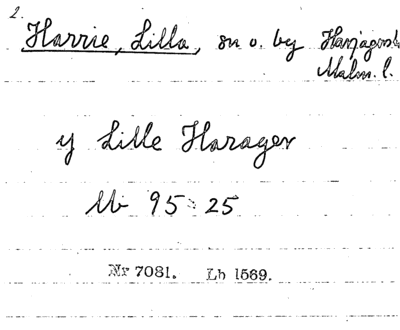 2.
Harrie, Lilla, sn o. by Harjagers h.
Malm. l.
y Lille Harager
Mb 95:25
Nr 7081. Lb 1569.